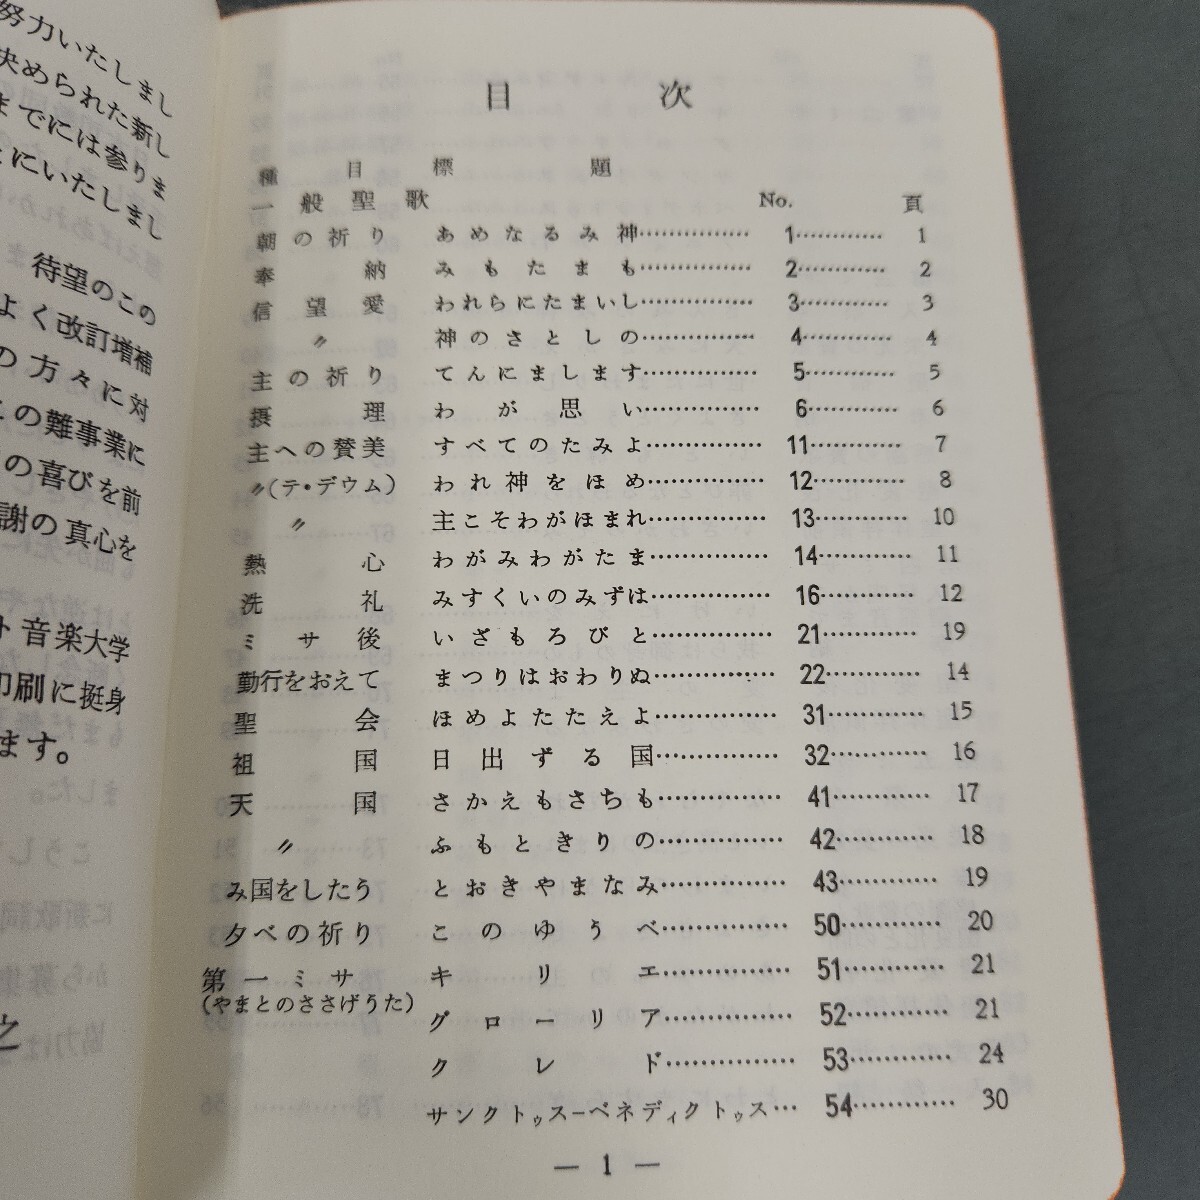 努力いたしまし
決められた新し
までには参りま
とにいたしまし
待望のこの
よく改訂増補
の方々に対
この難事業に
の喜びを前
謝の真心を
ト音楽大学
印刷に挺身
ます。
之
目次
種目 標題
一般聖歌 No. 頁
朝の祈り あめなるみ神…………… 1………… 1
奉納 みもたまも…………… 2………… 2
信望愛 われらにたまいし…………… 3………… 3
〃 神のさとしの…………… 4………… 4
主の祈り てんにまします…………… 5………… 5
摂理 わが思い…………… 6………… 6
主への賛美 すべてのたみよ…………… 11………… 7
〃(テ・デウム) われ神をほめ…………… 12………… 8
〃 主こそわがほまれ…………… 13………… 10
熱心 わがみわがたま…………… 14………… 11
洗礼 みすくいのみずは…………… 16………… 12
ミサ後 いざもろびと…………… 21………… 19
勤行をおえて まつりはおわりぬ…………… 22………… 14
聖会 ほめよたたえよ…………… 31………… 15
祖国 日出ずる国…………… 32………… 16
天国 さかえもさちも…………… 41………… 17
〃 ふもときりの…………… 42………… 18
み国をしたう とおきやまなみ…………… 43………… 19
夕べの祈り このゆうべ…………… 50………… 20
第一ミサ キリエ…………… 51………… 21
(やまとのささげうた)
グローリア…………… 52………… 21
クレド…………… 53………… 24
サンクトゥスーベネディクトゥス… 54………… 30
— 1 —